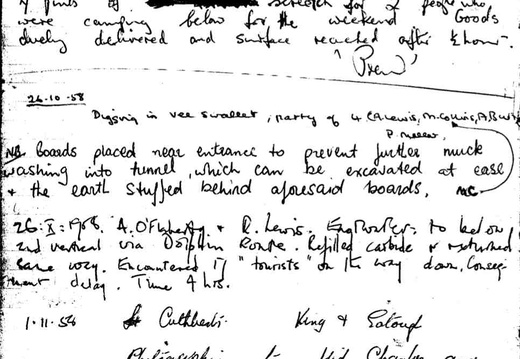 4 pints of stretch for 2 people who
were camping below for the weekend. Goods
duely delivered and surface reached after ½ hour.
'Prew'
26-10-58
Digging in vee swallet, party of 4 C.A. Lewis, M. Collins,
P. Miller.
NB Boards placed near entrance to prevent further muck
washing into tunnel, which can be excavated at ease
& the earth stuffed behind aforesaid boards. MC
26:X:1958. A. O'Flaherty & R. Lewis. to below
2nd vertical via Dolphin Route. Refilled carbide & returned
same way. Encountered 17 "tourists" on the way down, Conseq-
uent delay. Time 4 hrs.
1.11.58 St Cuthberts King &
to